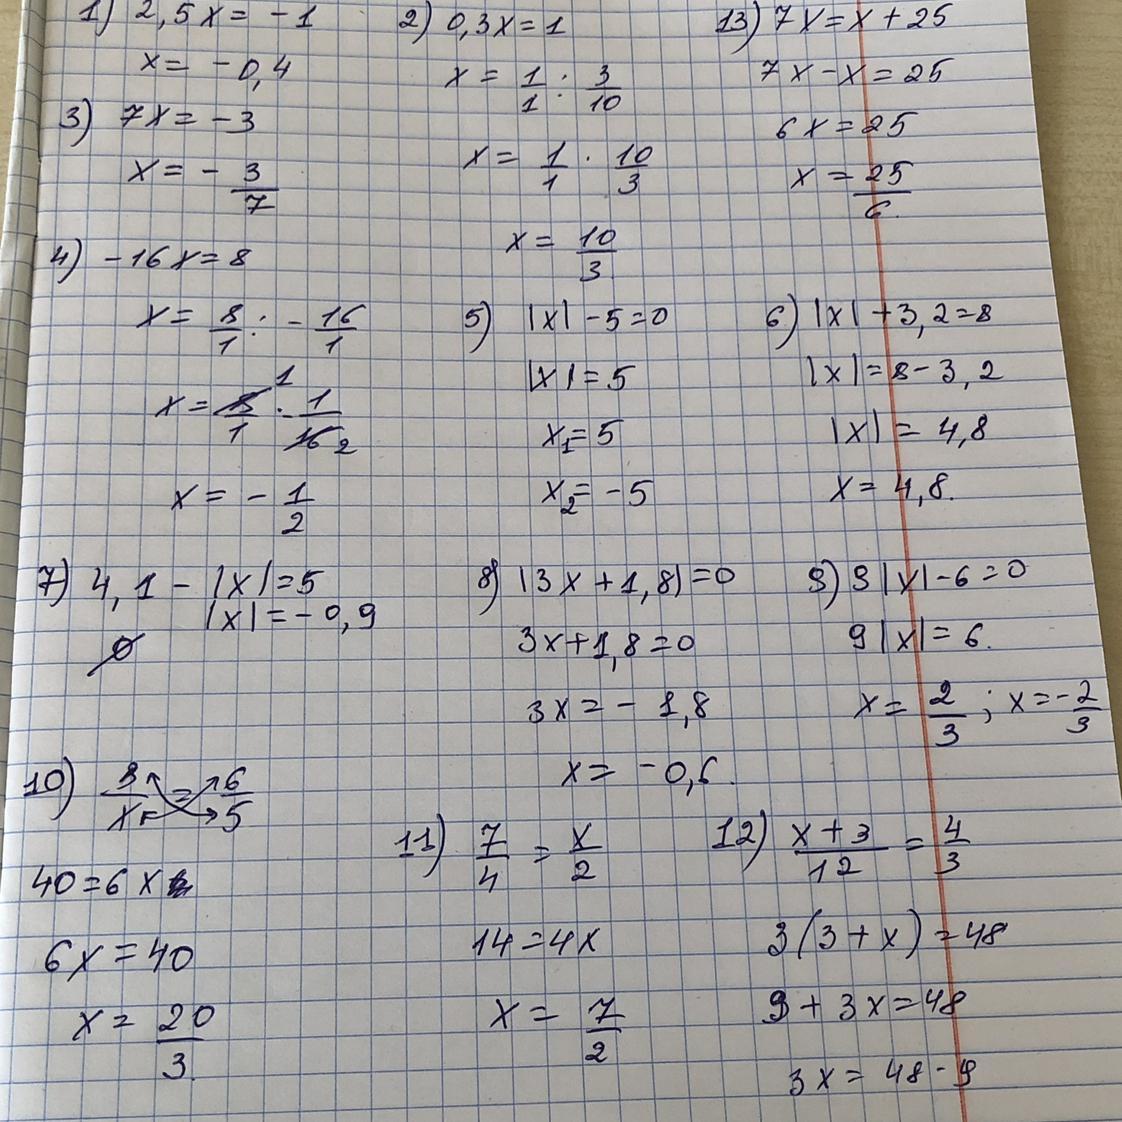 1) 2,5x = -1
x = -0,4
2) 0,3x = 1
x = 1/1 : 3/10
x = 1/1 · 10/3
x = 10/3
13) 7x = x + 25
7x - x = 25
6x = 25
x = 25/6
3) 7x = -3
x = - 3/7
4) -16x = 8
x = 8/1 : - 16/1
x = 8/1 · 1/16 1 2
x = - 1/2
5) |x| - 5 = 0
|x| = 5
x₁ = 5
x₂ = -5
6) |x| + 3,2 = 8
|x| = 8 - 3,2
|x| = 4,8
x = 4,8.
7) 4,1 - |x| = 5
|x| = -0,9
∅
8) |3x + 1,8| = 0
3x + 1,8 = 0
3x = - 1,8
x = -0,6.
9) 9|x| - 6 = 0
9|x| = 6.
x = 2/3 ; x = -2/3
10) 8/x = 6/5
40 = 6x
6x = 40
x = 20/3.
11) 7/4 = x/2
14 = 4x
x = 7/2
12) x+3/12 = 4/3
3(3+x) = 48
9 + 3x = 48
3x = 48 - 9